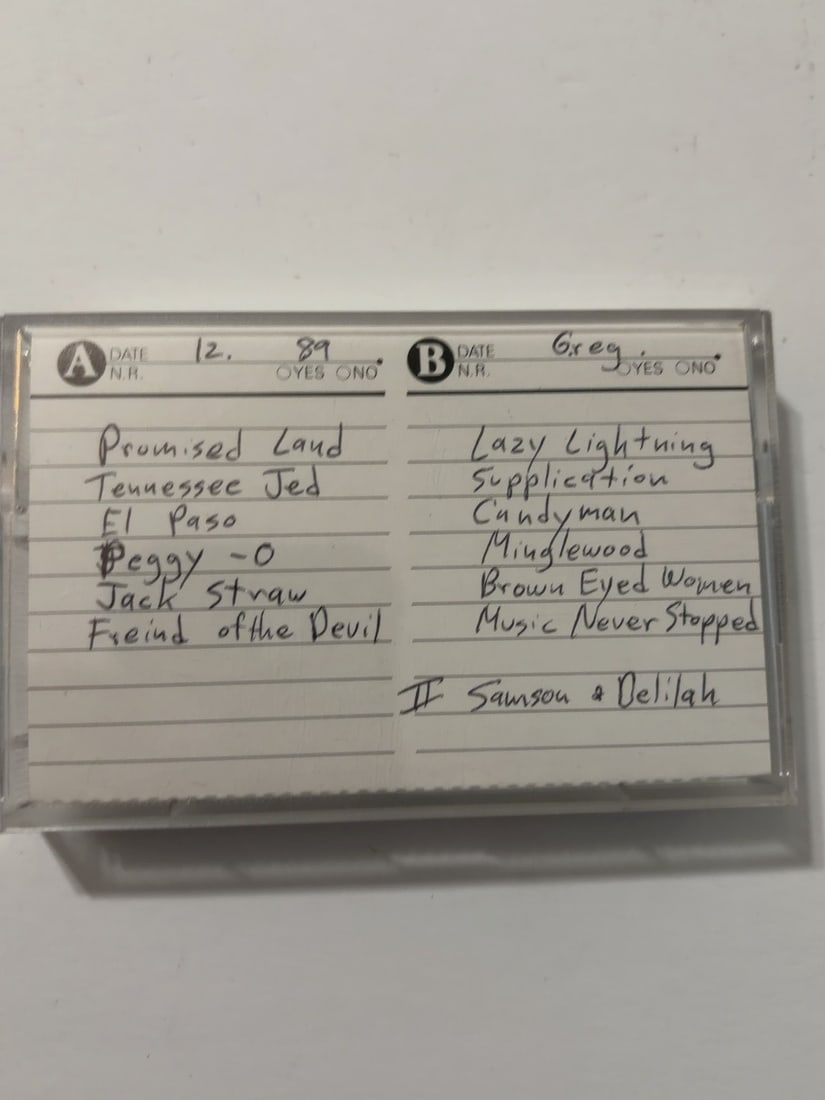 A DATE 12. 89
N.R. OYES ONO
Promised Land
Tennessee Jed
El Paso
Peggy-O
Jack Straw
Freind of the Devil
B DATE Greg.
N.R. OYES ONO
Lazy Lightning
Supplication
Candyman
Minglewood
Brown Eyed Women
Music Never Stopped
II Samson & Delilah